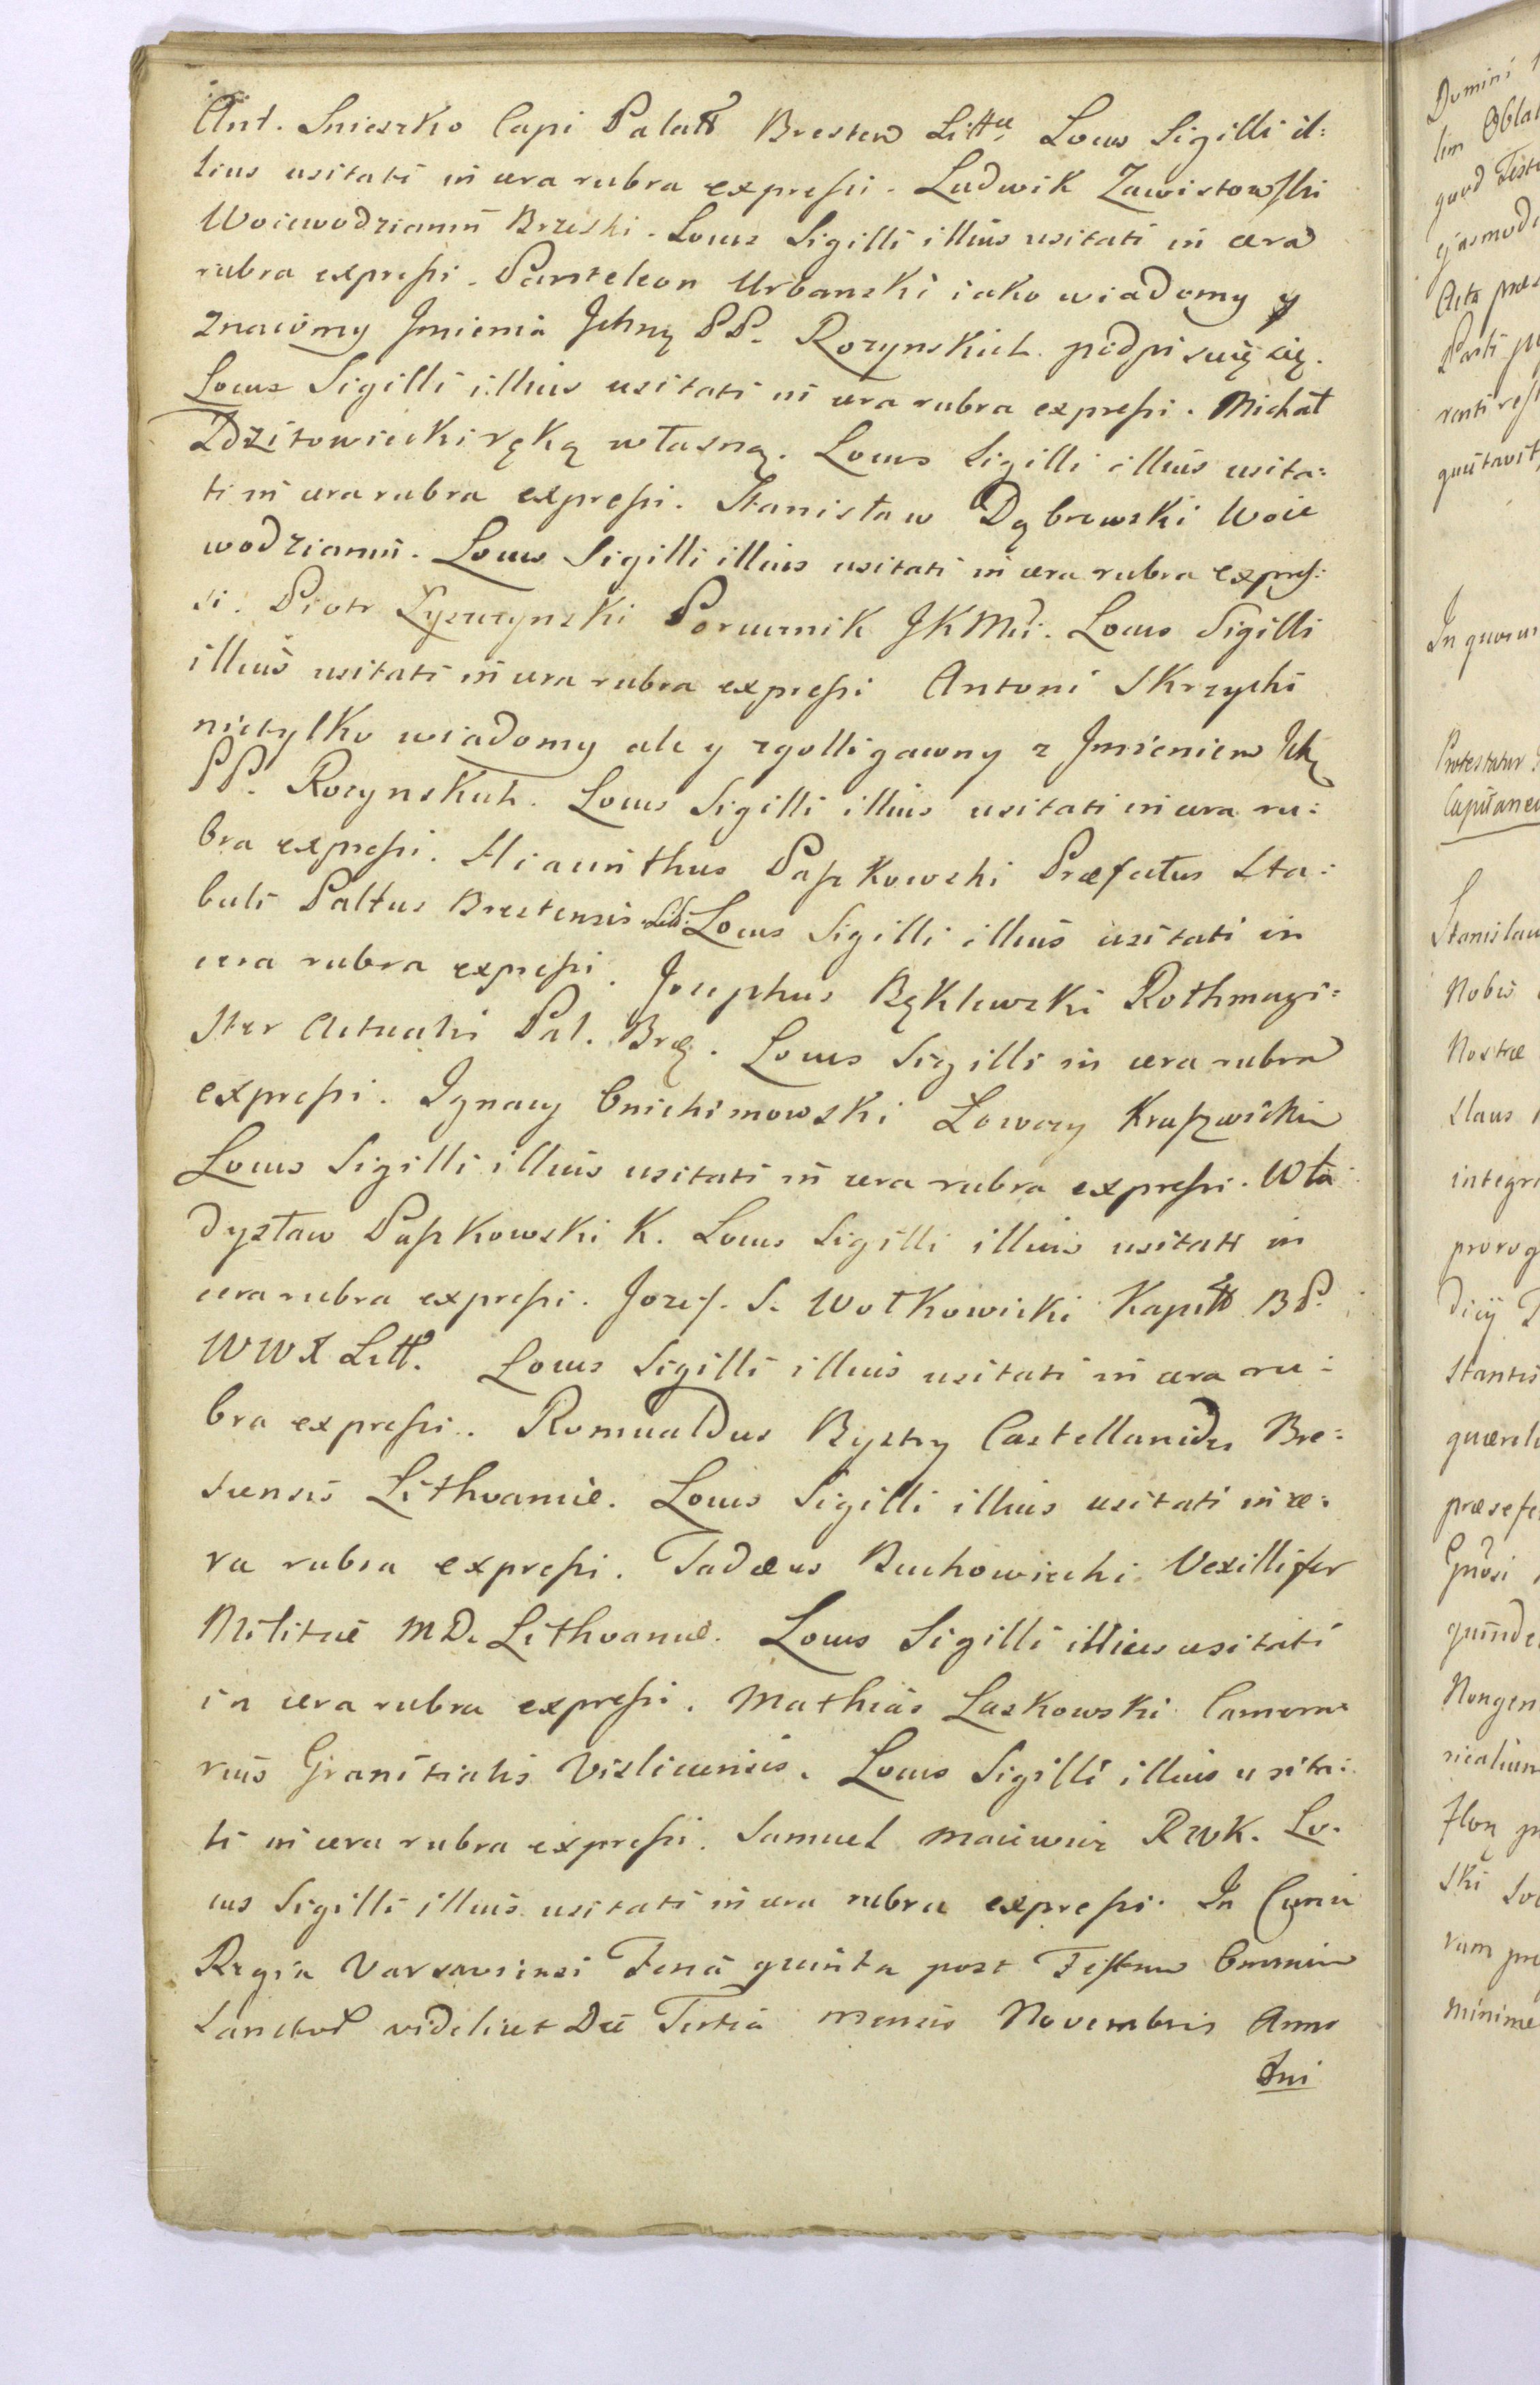 Ant. Snieszko Capi Palatt Bresten Littæ Locus Sigilli il:
lius usitati in cera rubra expressi. Ludwik Zawistowski
Woiewodzianin Brzeski. Locus Sigilli illius usitati in cera
rubra expressi. Panteleon Urbanski iako wiadomy y
znaiomy Jmienia Jchmę PP. Rozynskich podpisuię się.
Locus Sigilli illius usitati in cera rubra expressi. Michał
Zdzitowiecki ręką własną. Locus Sigilli illius usita:
ti in cera rubra expressi. Stanisław Dąbrowski Woie
wodzianin. Locus Sigilli illius usitati in cera rubra expres:
si. Piotr Łyszczynski Porucznik JKMci. Locus Sigilli
illius usitati in cera rubra expressi Antoni Skrzycki
nietylko wiadomy ale y zgolligawny z Jmieniem Jch
PP. Rozynskich. Locus Sigilli illius usitati in cera ru:
bra expressi. Hiacinthus Paszkowski Præfectus Sta:
buli Paltus Brestensis Litt: Locus Sigilli illius usitati in
cera rubra expressi. Josephus Bęklewski Rothmagi:
ster Actualis Pal. Brę. Locus Sigilli in cera rubra
expressi. Ignacy Cnichimowski Łowczy Kruszwicki
Locus Sigilli illius usitati in cera rubra expressi. Wła
dysław Paszkowski K. Locus Sigilli illius usitati in
cera rubra expressi. Jozef. S. Wołkowicki Kapitt BP.
WWX Litt. Locus Sigilli illius usitati in cera ru:
bra expressi. Romualdus Bystry Castellanides Bre:
stensis Lithvaniæ. Locus Sigilli illius usitati in ce:
ra rubra expressi. Tadæus Buchowiecki Vexillifer
Militiæ MD. Lithvaniæ. Locus Sigilli illius usitati
in cera rubra expressi. Mathias Laskowski Camera
rius Granitialis Visliciensis. Locus Sigilli illius usita:
ti in cera rubra expressi. Samuel Maiewicz RWK. Lo.
cus Sigilli illius usitati in cera rubra expressi. In Curia
Regia Varsaviensi Feriâ quinta post Festum Omnium
Sanctor videlicet Die Tertiâ mensis Novembris Anno
Dni
Domini
Oblat
quod
ejusmodi
Acta
Parti
quitavit
In quorum
Protestatur
Capitaneu
Stanislau
Nobis
Nostræ
slaus
integr
prorog
dicij
stantis
querel
præsefe
Gnosi
quinde
Nongen
nicalium
ski
rum
minime